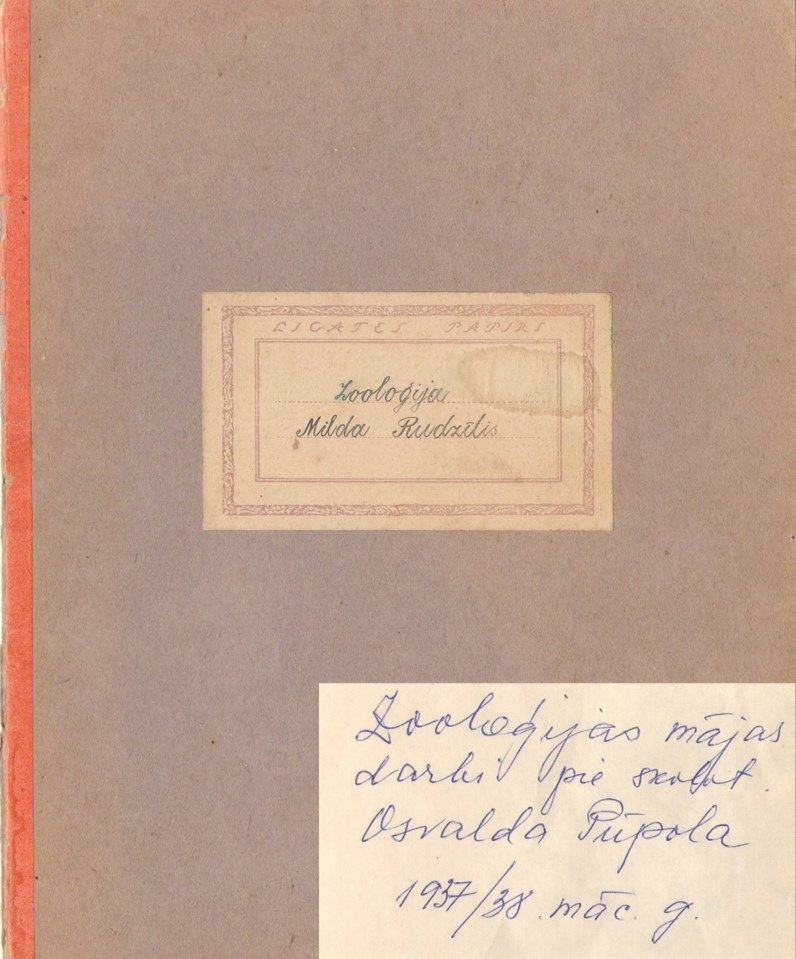 LIGATES PAPIRS
Zooloģija
Milda Rudzītis
Zooloģijas mājas
darbi pie skolot.
Osvalda Pūpola
1937/38. māc. g.